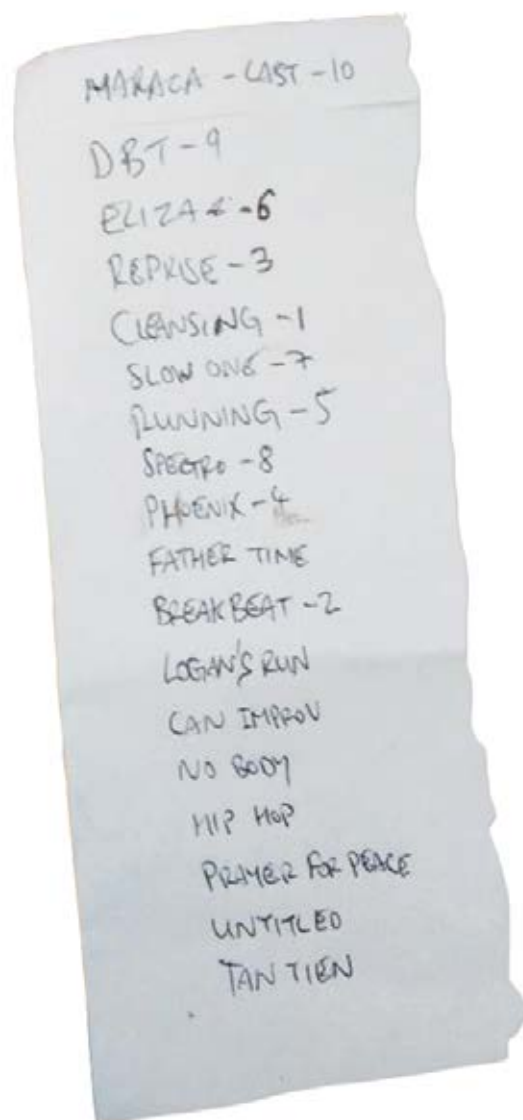 MARACA - LAST - 10
DBT - 9
ELIZA - 6
REPRISE - 3
CLEANSING - 1
SLOW ONE - 7
RUNNING - 5
SPECTRO - 8
PHOENIX - 4
FATHER TIME
BREAKBEAT - 2
LOGAN'S RUN
CAN IMPROV
NO BODY
HIP HOP
PRAYER FOR PEACE
UNTITLED
TAN TIEN